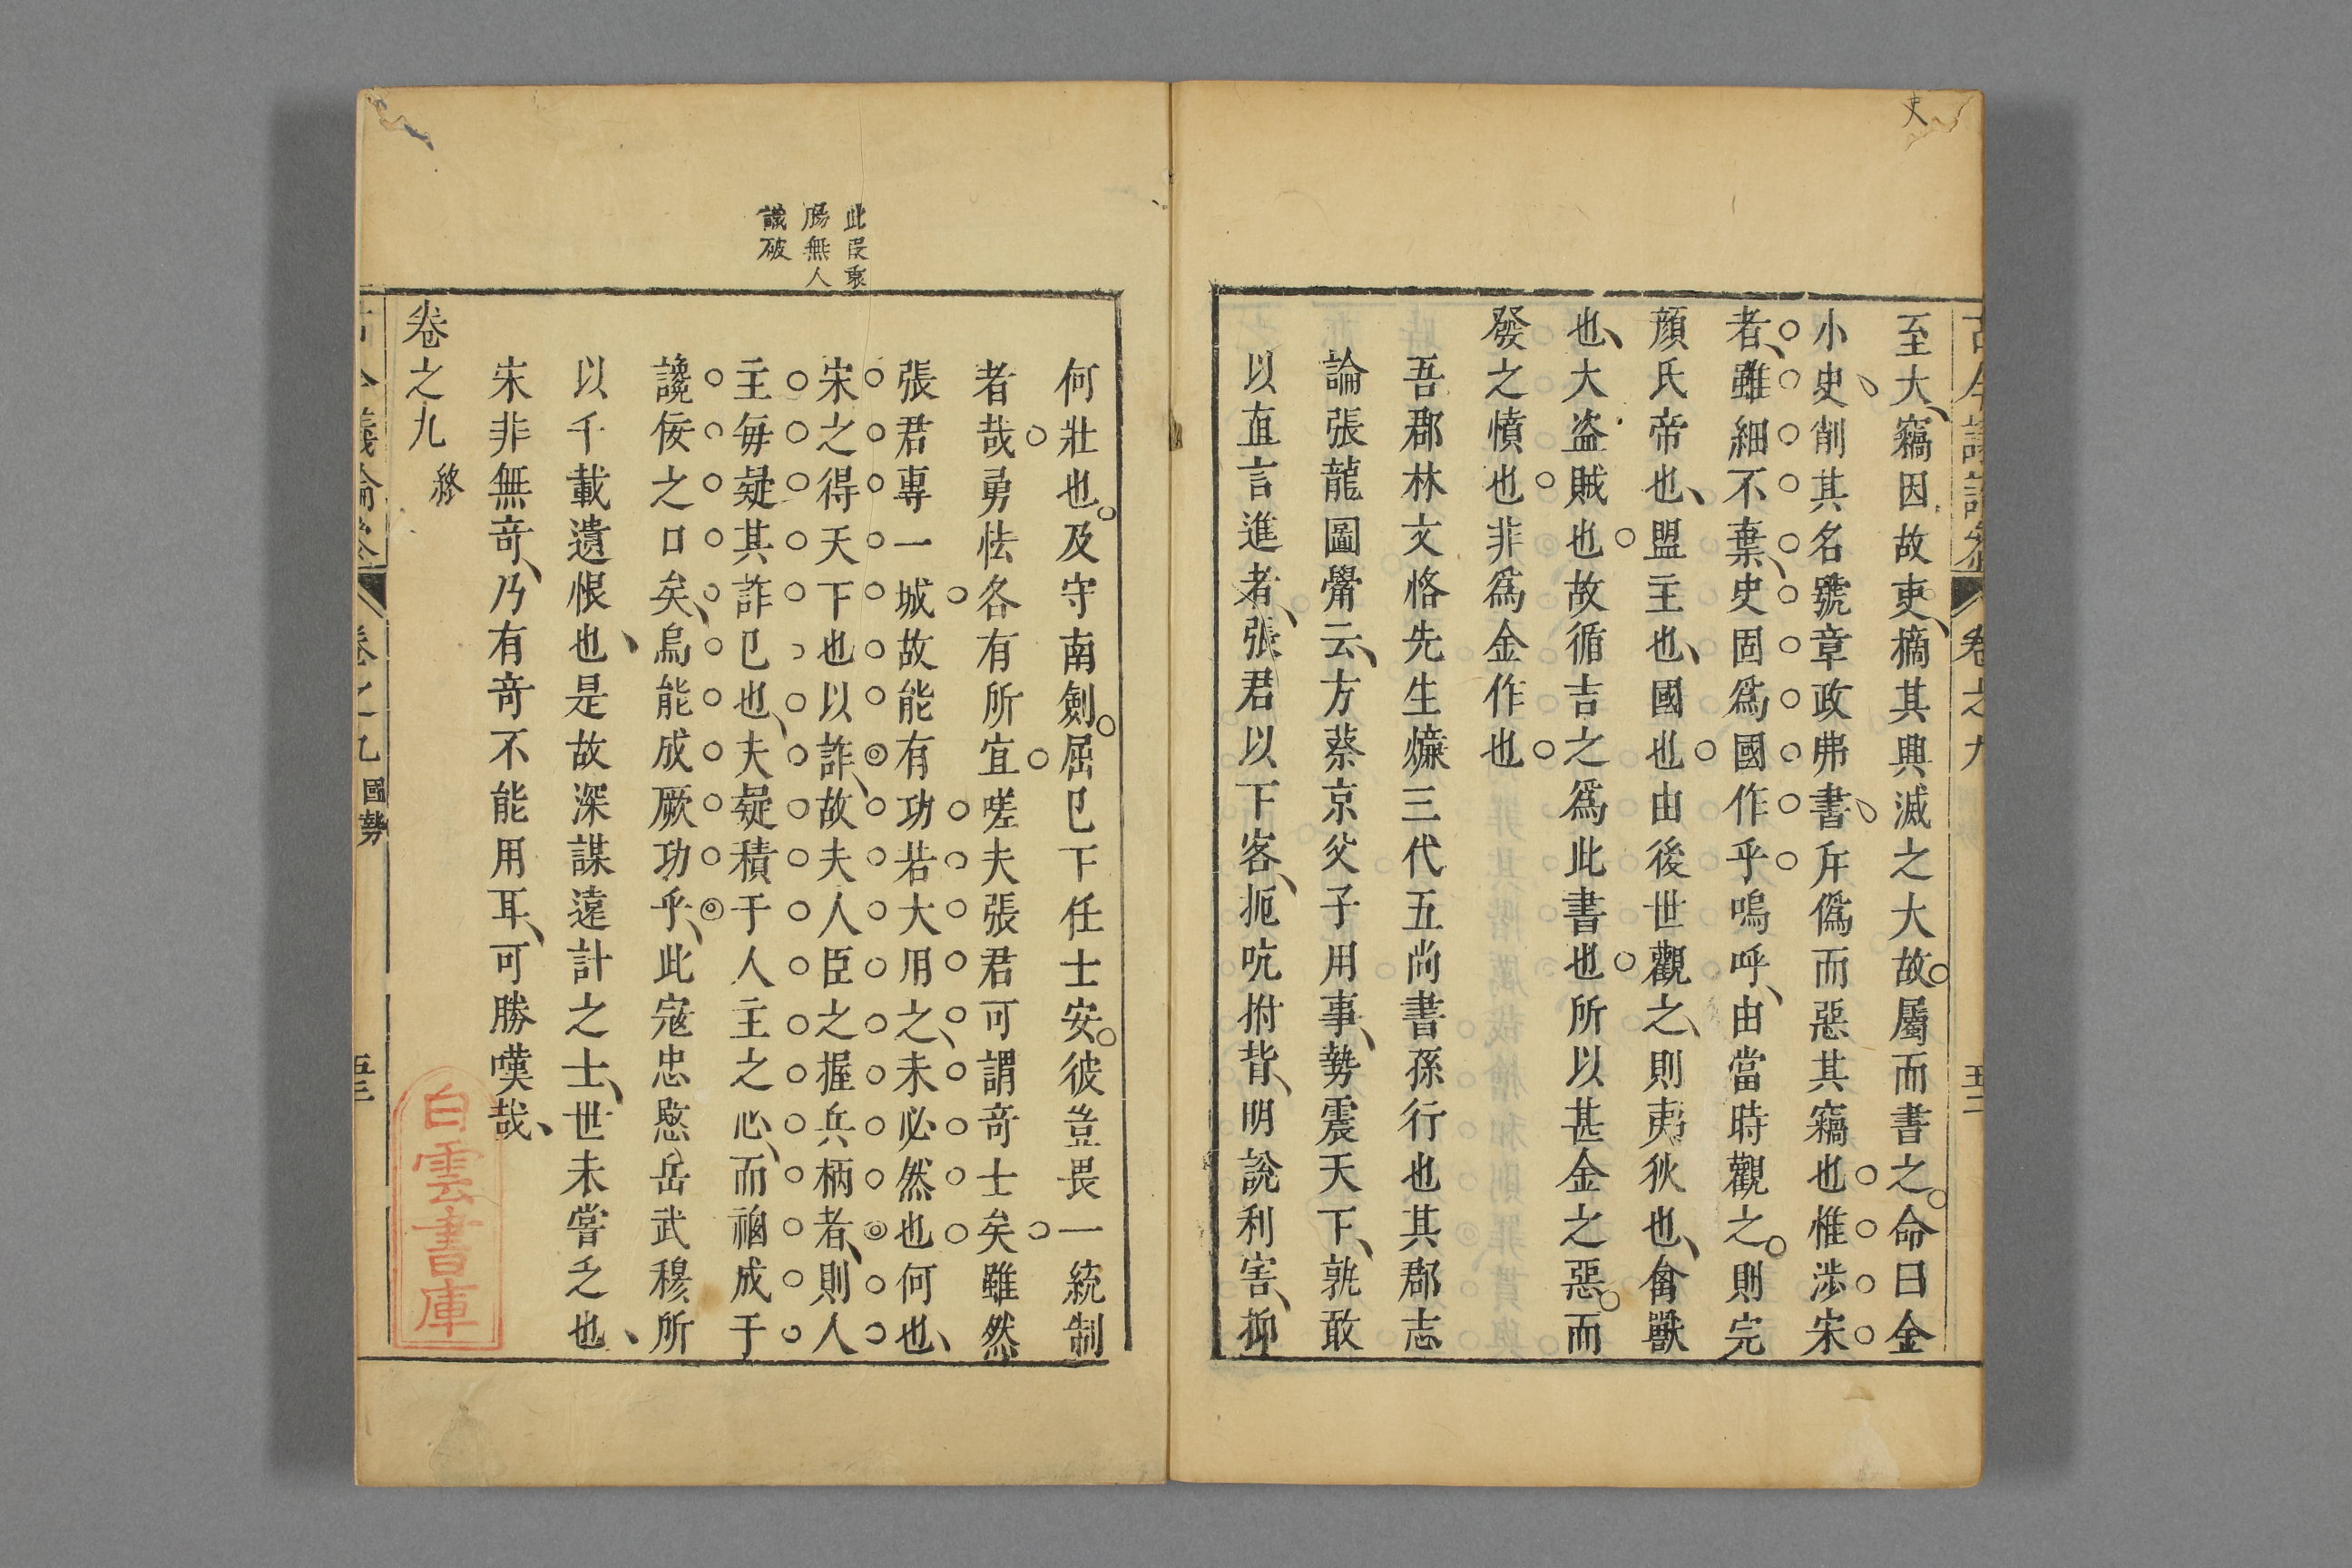 吏
卷之九
五二
至大竊因故吏摘其興滅之大故屬而書之命曰金
小史削其名號章政弗書斥僞而惡其竊也惟涉宋
者雖細不棄史固爲國作乎嗚呼由當時觀之則完
顔氏帝也盟主也國也由後世觀之則夷狄也禽獸
也大盗賊也故循吉之爲此書也所以甚金之惡而
發之憤也非爲金作也
吾郡林文恪先生燫三代五尚書孫行也其郡志
論張龍圖觷云方蔡京父子用事勢震天下孰敢
以直言進者張君以下客扼吭拊背明說利害抑
何壯也及守南劍屈已下任士安彼豈畏一統制
者哉勇怯各有所宜嗟夫張君可謂竒士矣雖然
張君專一城故能有功若大用之未必然也何也
宋之得天下也以詐故夫人臣之握兵柄者則人
主每疑其詐已也夫疑積于人主之心而禍成于
讒佞之口矣烏能成厥功乎此寇忠愍岳武穆所
以千載遺恨也是故深謀遠計之士世未嘗乏也
宋非無竒乃有竒不能用耳可勝嘆哉
卷之九 終
此段衷
膓無人
識破
國勢
白雲書庫